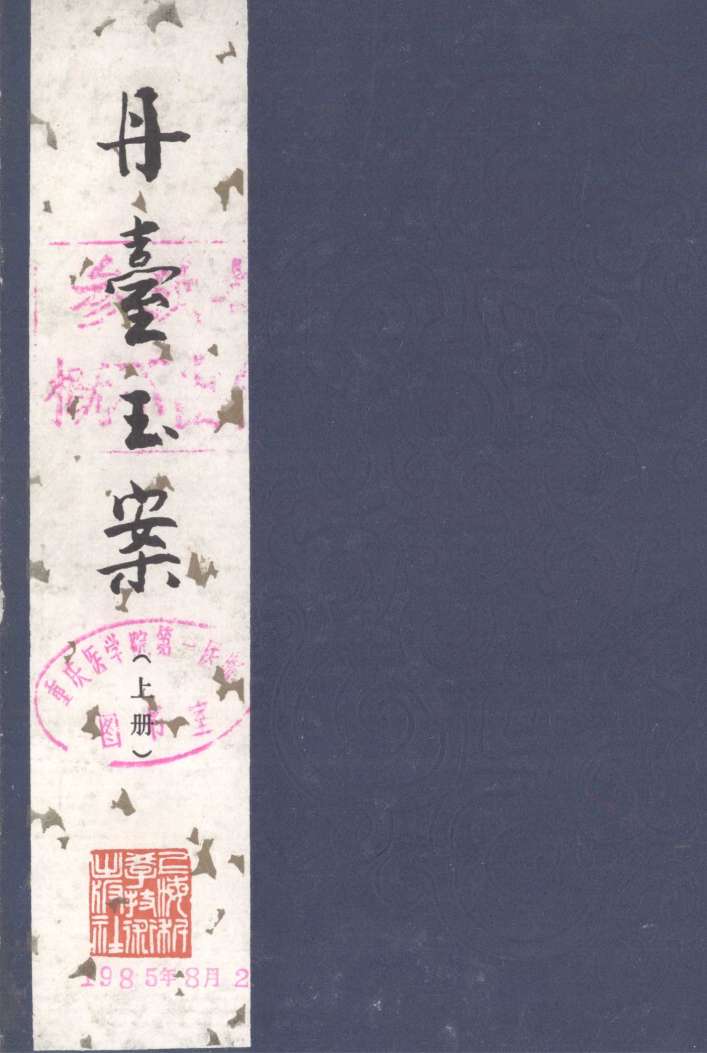 丹臺玉案
（上册）
重庆医学院第一医
图书室
上海科学技术出版社
1985年8月2